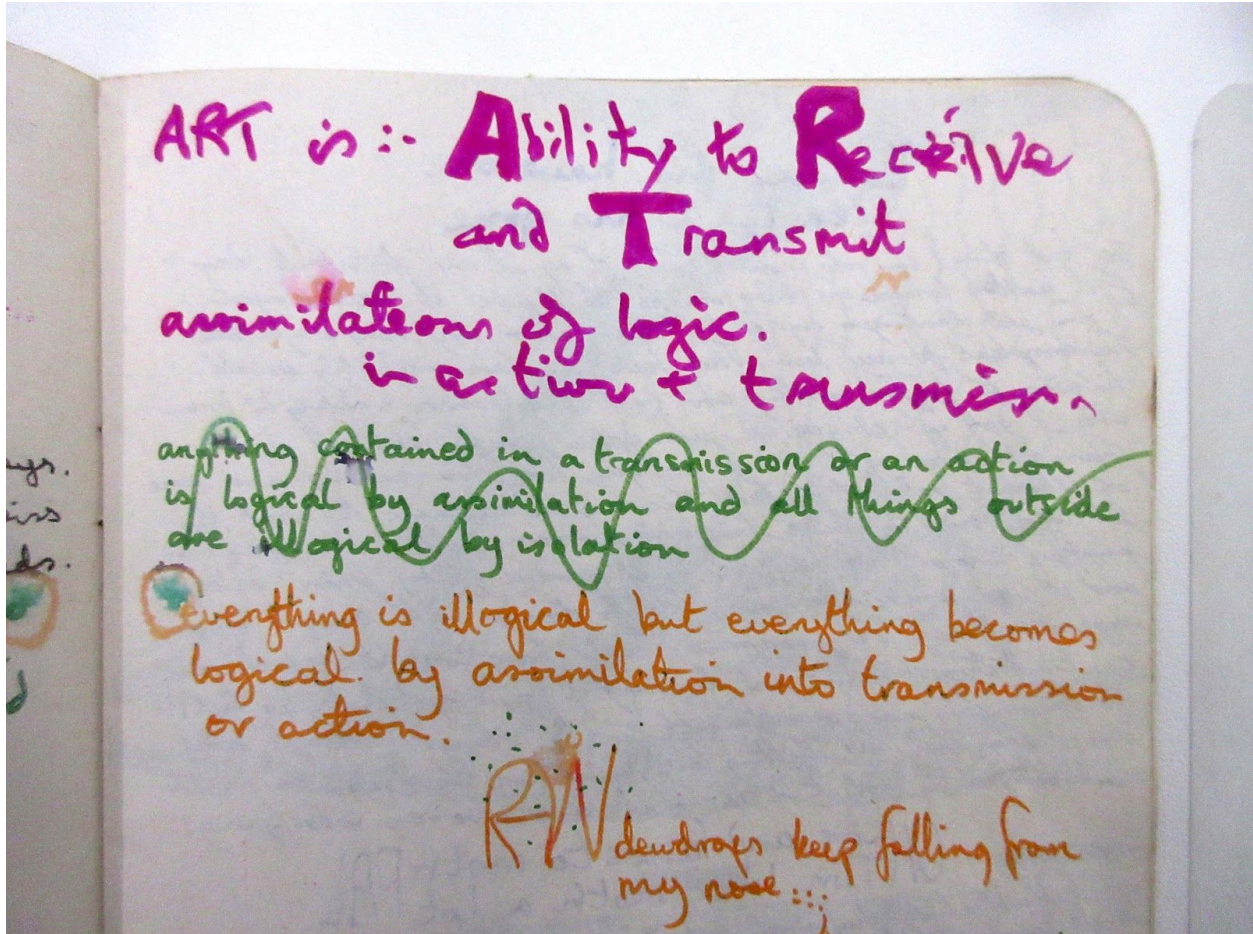 ART is :- Ability to Receive
and Transmit
assimilations of logic.
in action + transmission.
anything contained in a transmission or an action
is logical by assimilation and all things outside
are illogical by isolation
everything is illogical but everything becomes
logical. by assimilation into transmission
or action.
RW
dewdrops keep falling from
my nose :::